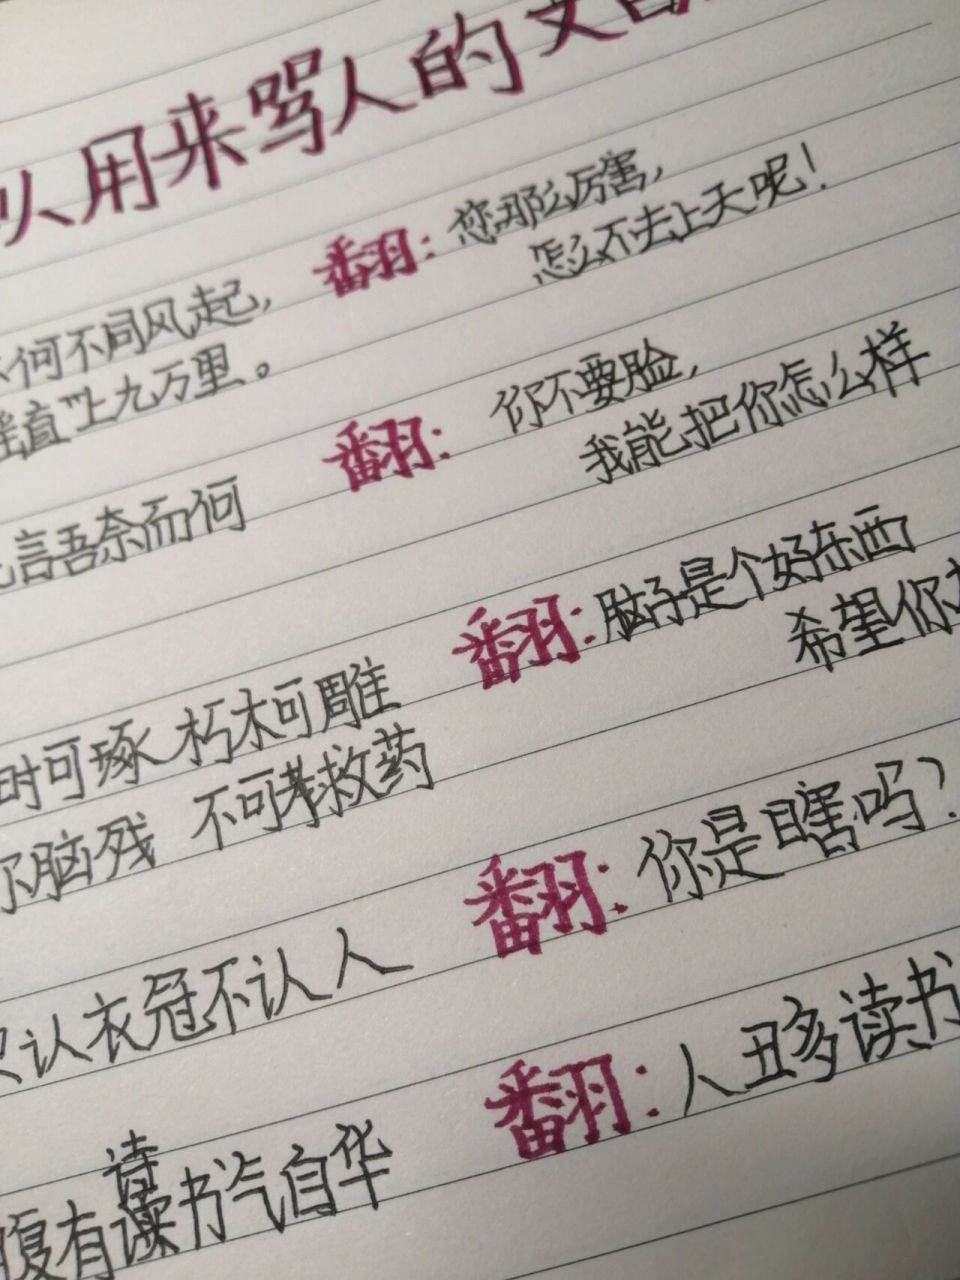 以用来骂人的文言
何不同风起,
翻: 您那么厉害,
怎么不去上天呢!
摇直上九万里。
言吾奈而何
翻: 你不要脸,
我能把你怎么样
时可琢 朽木可雕
翻: 脑子是个好东西
希望你
尔脑残 不可救药
只认衣冠不认人
翻: 你是瞎吗?
腹有诗书气自华
翻: 人丑多读书